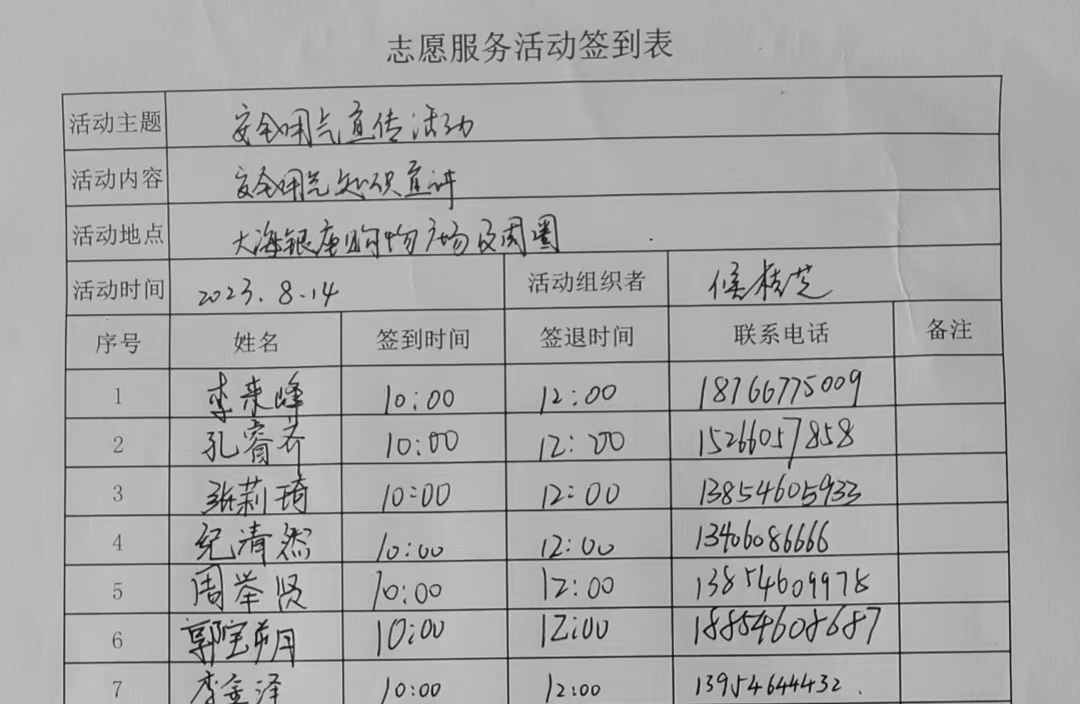 志愿服务活动签到表
活动主题 安全用气宣传活动
活动内容 安全用气知识宣讲
活动地点 大海银座购物广场及周围
活动时间 2023.8.14 活动组织者 侯桂芝
序号 姓名 签到时间 签退时间 联系电话 备注
1 李来峰 10:00 12:00 18766775009
2 孔睿齐 10:00 12:00 15266057858
3 张莉琦 10:00 12:00 13854605933
4 纪清然 10:00 12:00 13406086666
5 周举贤 10:00 12:00 13854609978
6 郭宝朋 10:00 12:00 18854608687
7 李金泽 10:00 12:00 13954644432.